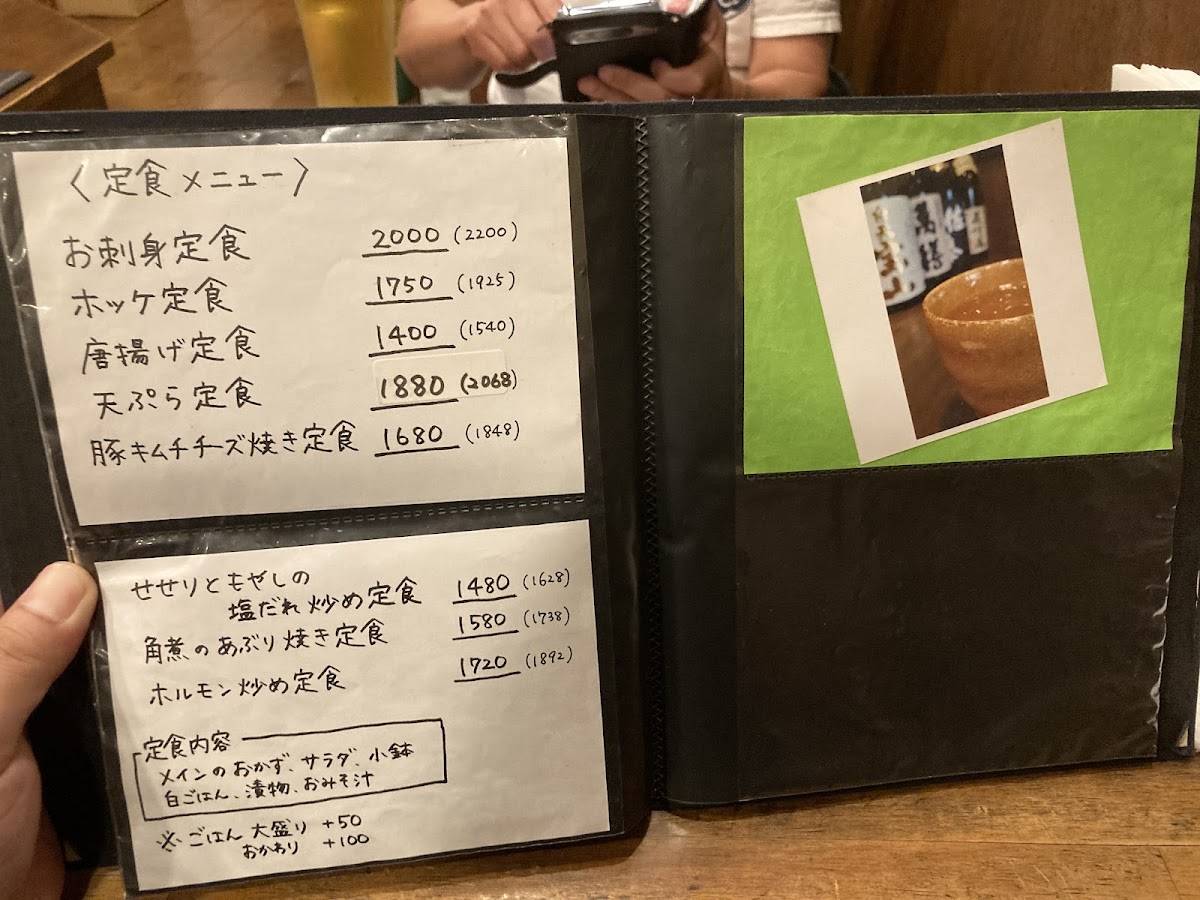 〈定食メニュー〉
お刺身定食 2000 (2200)
ホッケ定食 1750 (1925)
唐揚げ定食 1400 (1540)
天ぷら定食 1880 (2068)
豚キムチチーズ焼き定食 1680 (1848)
せせりともやしの
塩だれ炒め定食 1480 (1628)
角煮のあぶり焼き定食 1580 (1738)
ホルモン炒め定食 1720 (1892)
定食内容
メインのおかず、サラダ、小鉢
白ごはん、漬物、おみそ汁
※ごはん 大盛り +50
おかわり +100
萬膳